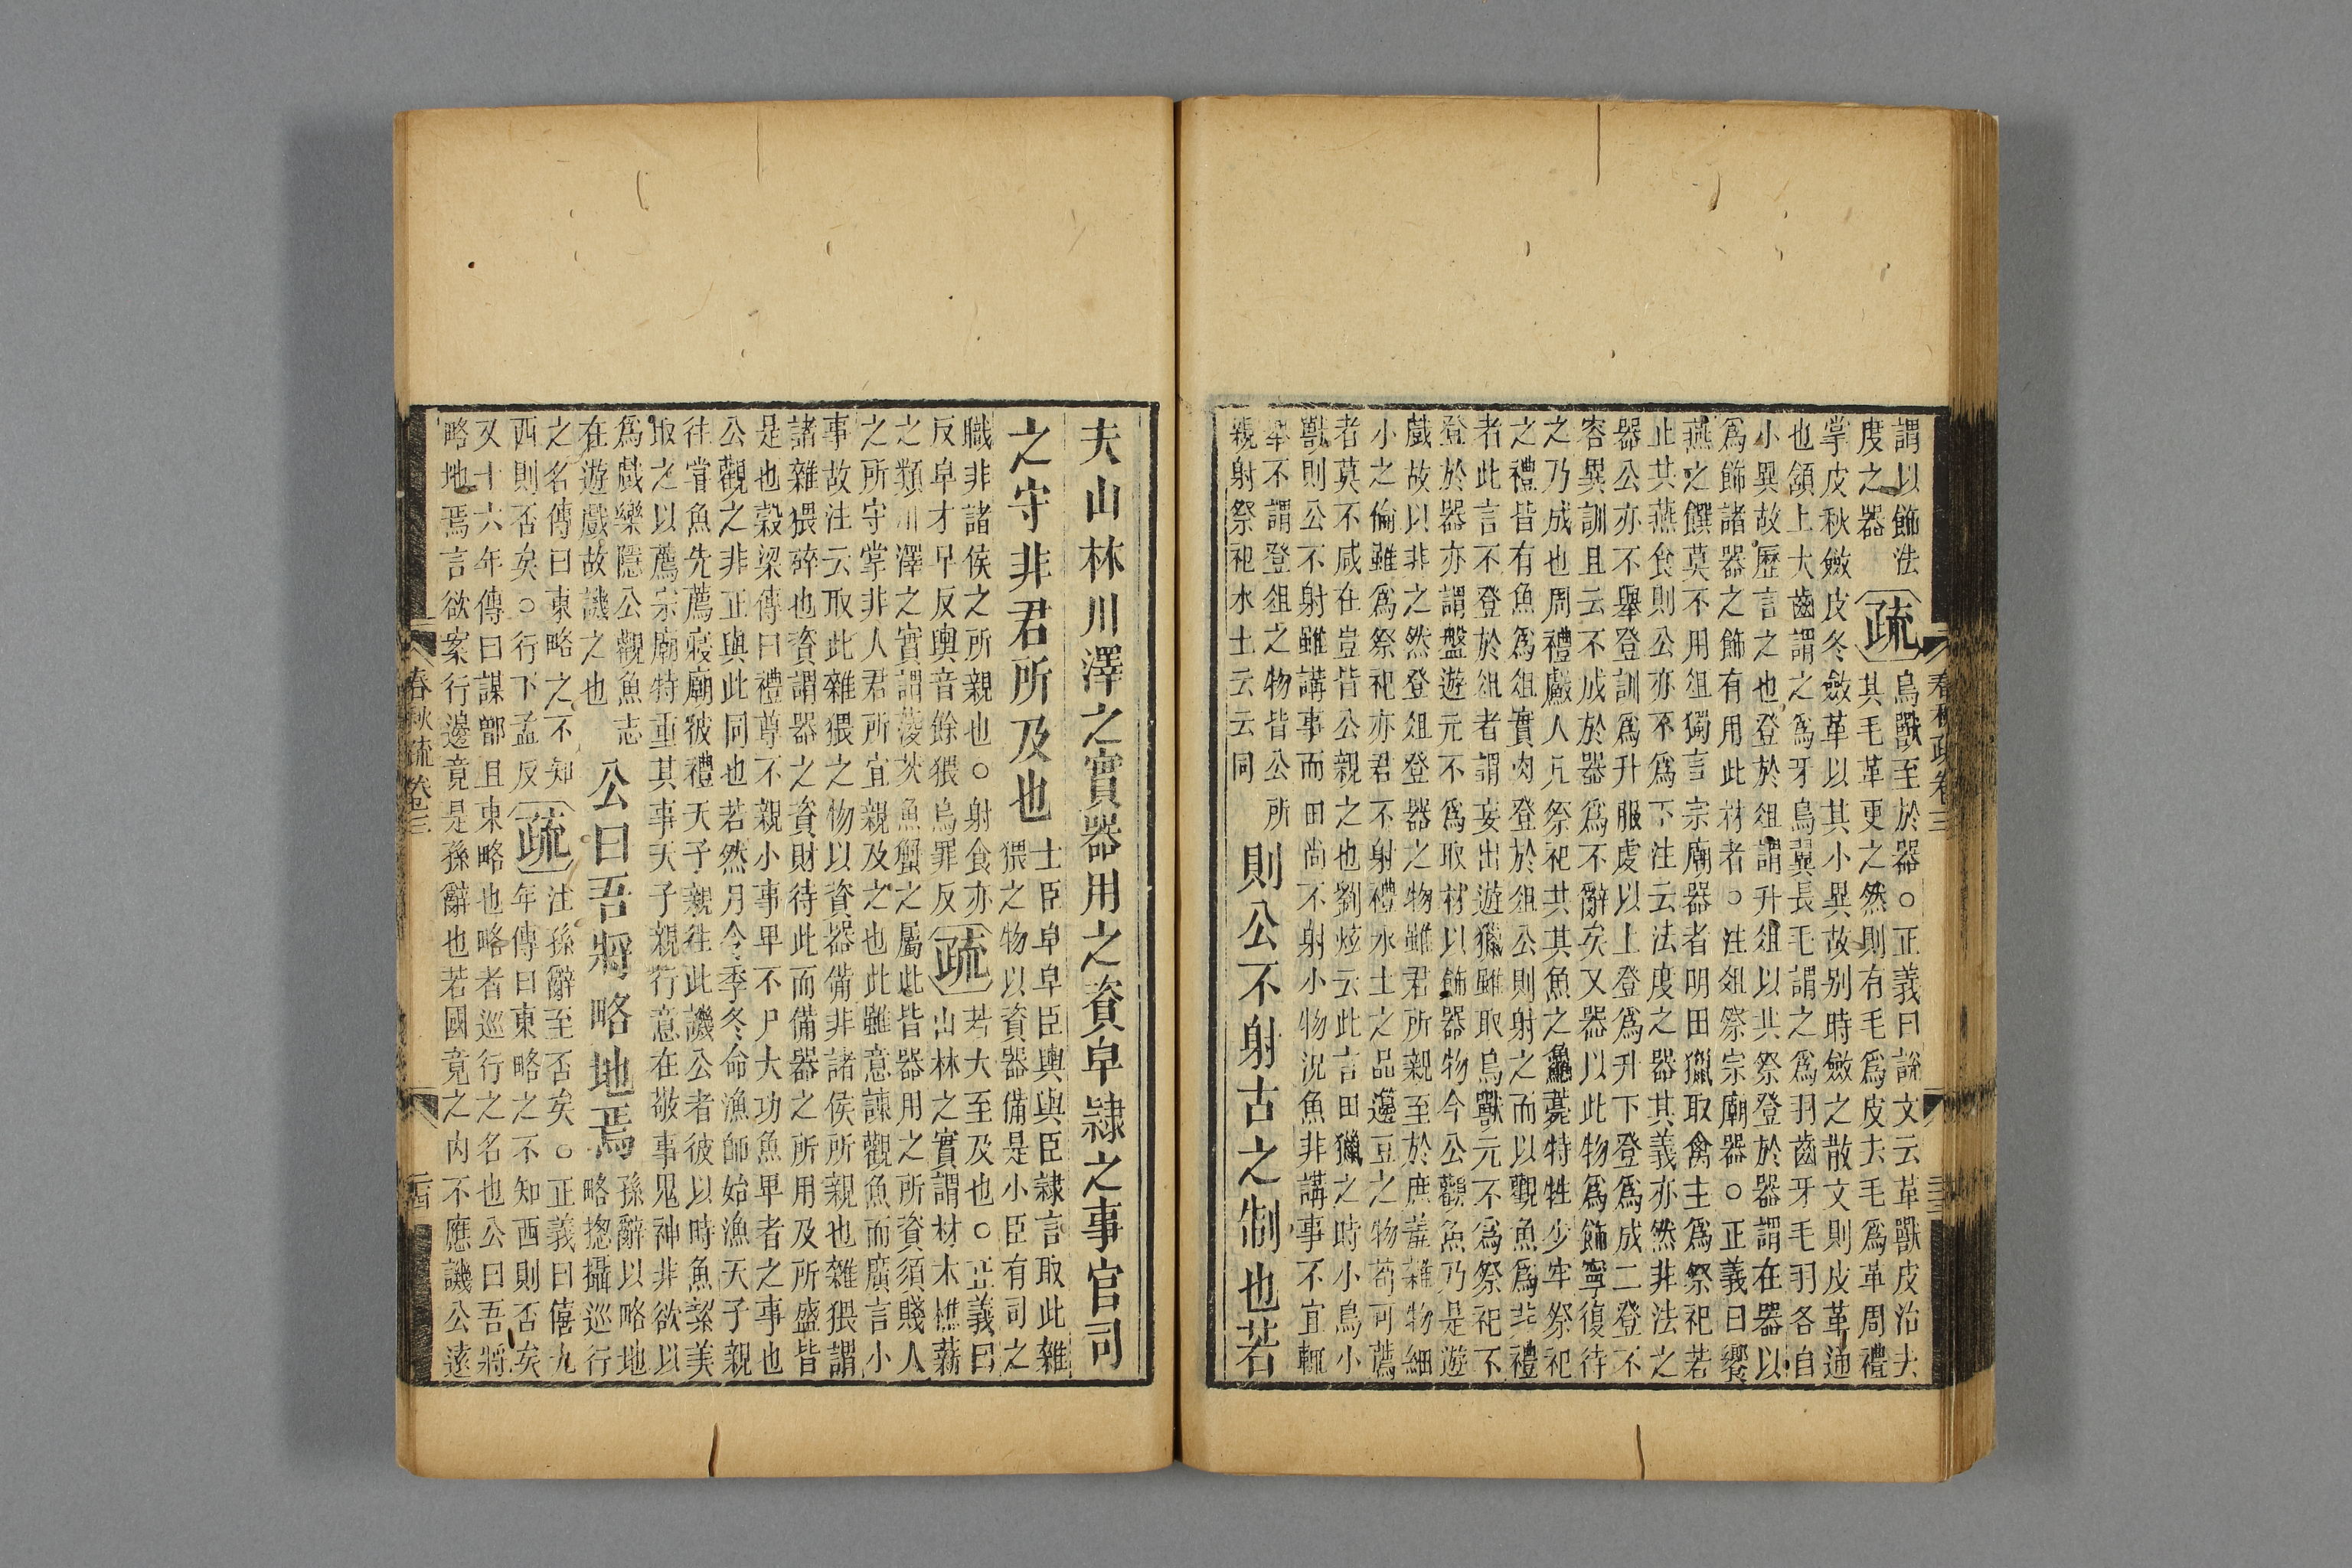 謂以飾法
度之器
疏
鳥獸至於器○正義曰說文云革獸皮治去
其毛革更之然則有毛爲皮去毛爲革周禮
掌皮秋斂皮冬斂革以其小異故別時斂之散文則皮革通
也頷上大齒謂之爲牙鳥翼長毛謂之爲羽齒牙毛羽各自
小異故歷言之也登於俎謂升俎以共祭登於器謂在器以
爲飾諸器之飾有用此材者○注俎祭宗廟器○正義曰饗
燕之饌莫不用俎獨言宗廟器者明田獵取禽主爲祭祀若
止共燕食則公亦不爲下注云法度之器其義亦然非法之
器公亦不舉登訓爲升服虔以上登爲升下登爲成二登不
容異訓且云不成於器爲不辭矣又器以此物爲飾寧復待
之乃成也周禮䱷人凡祭祀共其魚之鱻薧特牲少牢祭祀
之禮皆有魚爲俎實肉登於俎公則射之而以觀魚爲非禮
者此言不登於俎者謂妄出遊獵雖取鳥獸元不爲祭祀不
登於器亦謂盤遊元不爲取材以飾器物今公觀魚乃是遊
戲故以非之然登俎登器之物雖君所親至於庶羞雜物細
小之倫雖爲祭祀亦君不射禮水土之品籩豆之物苟可薦
者莫不咸在豈皆公親之也劉炫云此言田獵之時小鳥小
獸則公不射雖講事而田尚不射小物況魚非講事不宜輒
舉不謂登俎之物皆公所
親射祭祀水土云云同
則公不射古之制也若
春秋疏卷三
二十三
夫山林川澤之實器用之資皁隸之事官司
之守非君所及也
士臣皁皁臣輿輿臣隸言取此雜
猥之物以資器備是小臣有司之
職非諸侯之所親也○射食亦
反皁才早反輿音餘猥烏罪反
疏
若夫至及也○正義曰
山林之實謂材木樵薪
之類川澤之實謂菱芡魚蟹之屬此皆器用之所資須賤人
之所守掌非人君所宜親及之也此雖意諫觀魚而廣言小
事故注云取此雜猥之物以資器備非諸侯所親也雜猥謂
諸雜猥碎也資謂器之資財待此而備器之所用及所盛皆
是也穀梁傳曰禮尊不親小事卑不尸大功魚卑者之事也
公觀之非正與此同也若然月令季冬命漁師始漁天子親
往嘗魚先薦寢廟彼禮天子親往此譏公者彼以時魚絜美
取之以薦宗廟特重其事天子親行意在敬事鬼神非欲以
爲戲樂隱公觀魚志
在遊戲故譏之也
公曰吾將略地焉
孫辭以略地
略摠攝巡行
之名傳曰東略之不知
西則否矣○行下孟反
疏
注孫辭至否矣○正義曰僖九
年傳曰東略之不知西則否矣
又十六年傳曰謀鄫且東略也略者巡行之名也公曰吾將
略地焉言欲案行邊竟是孫辭也若國竟之內不應譏公遠
春秋疏卷三
二十四